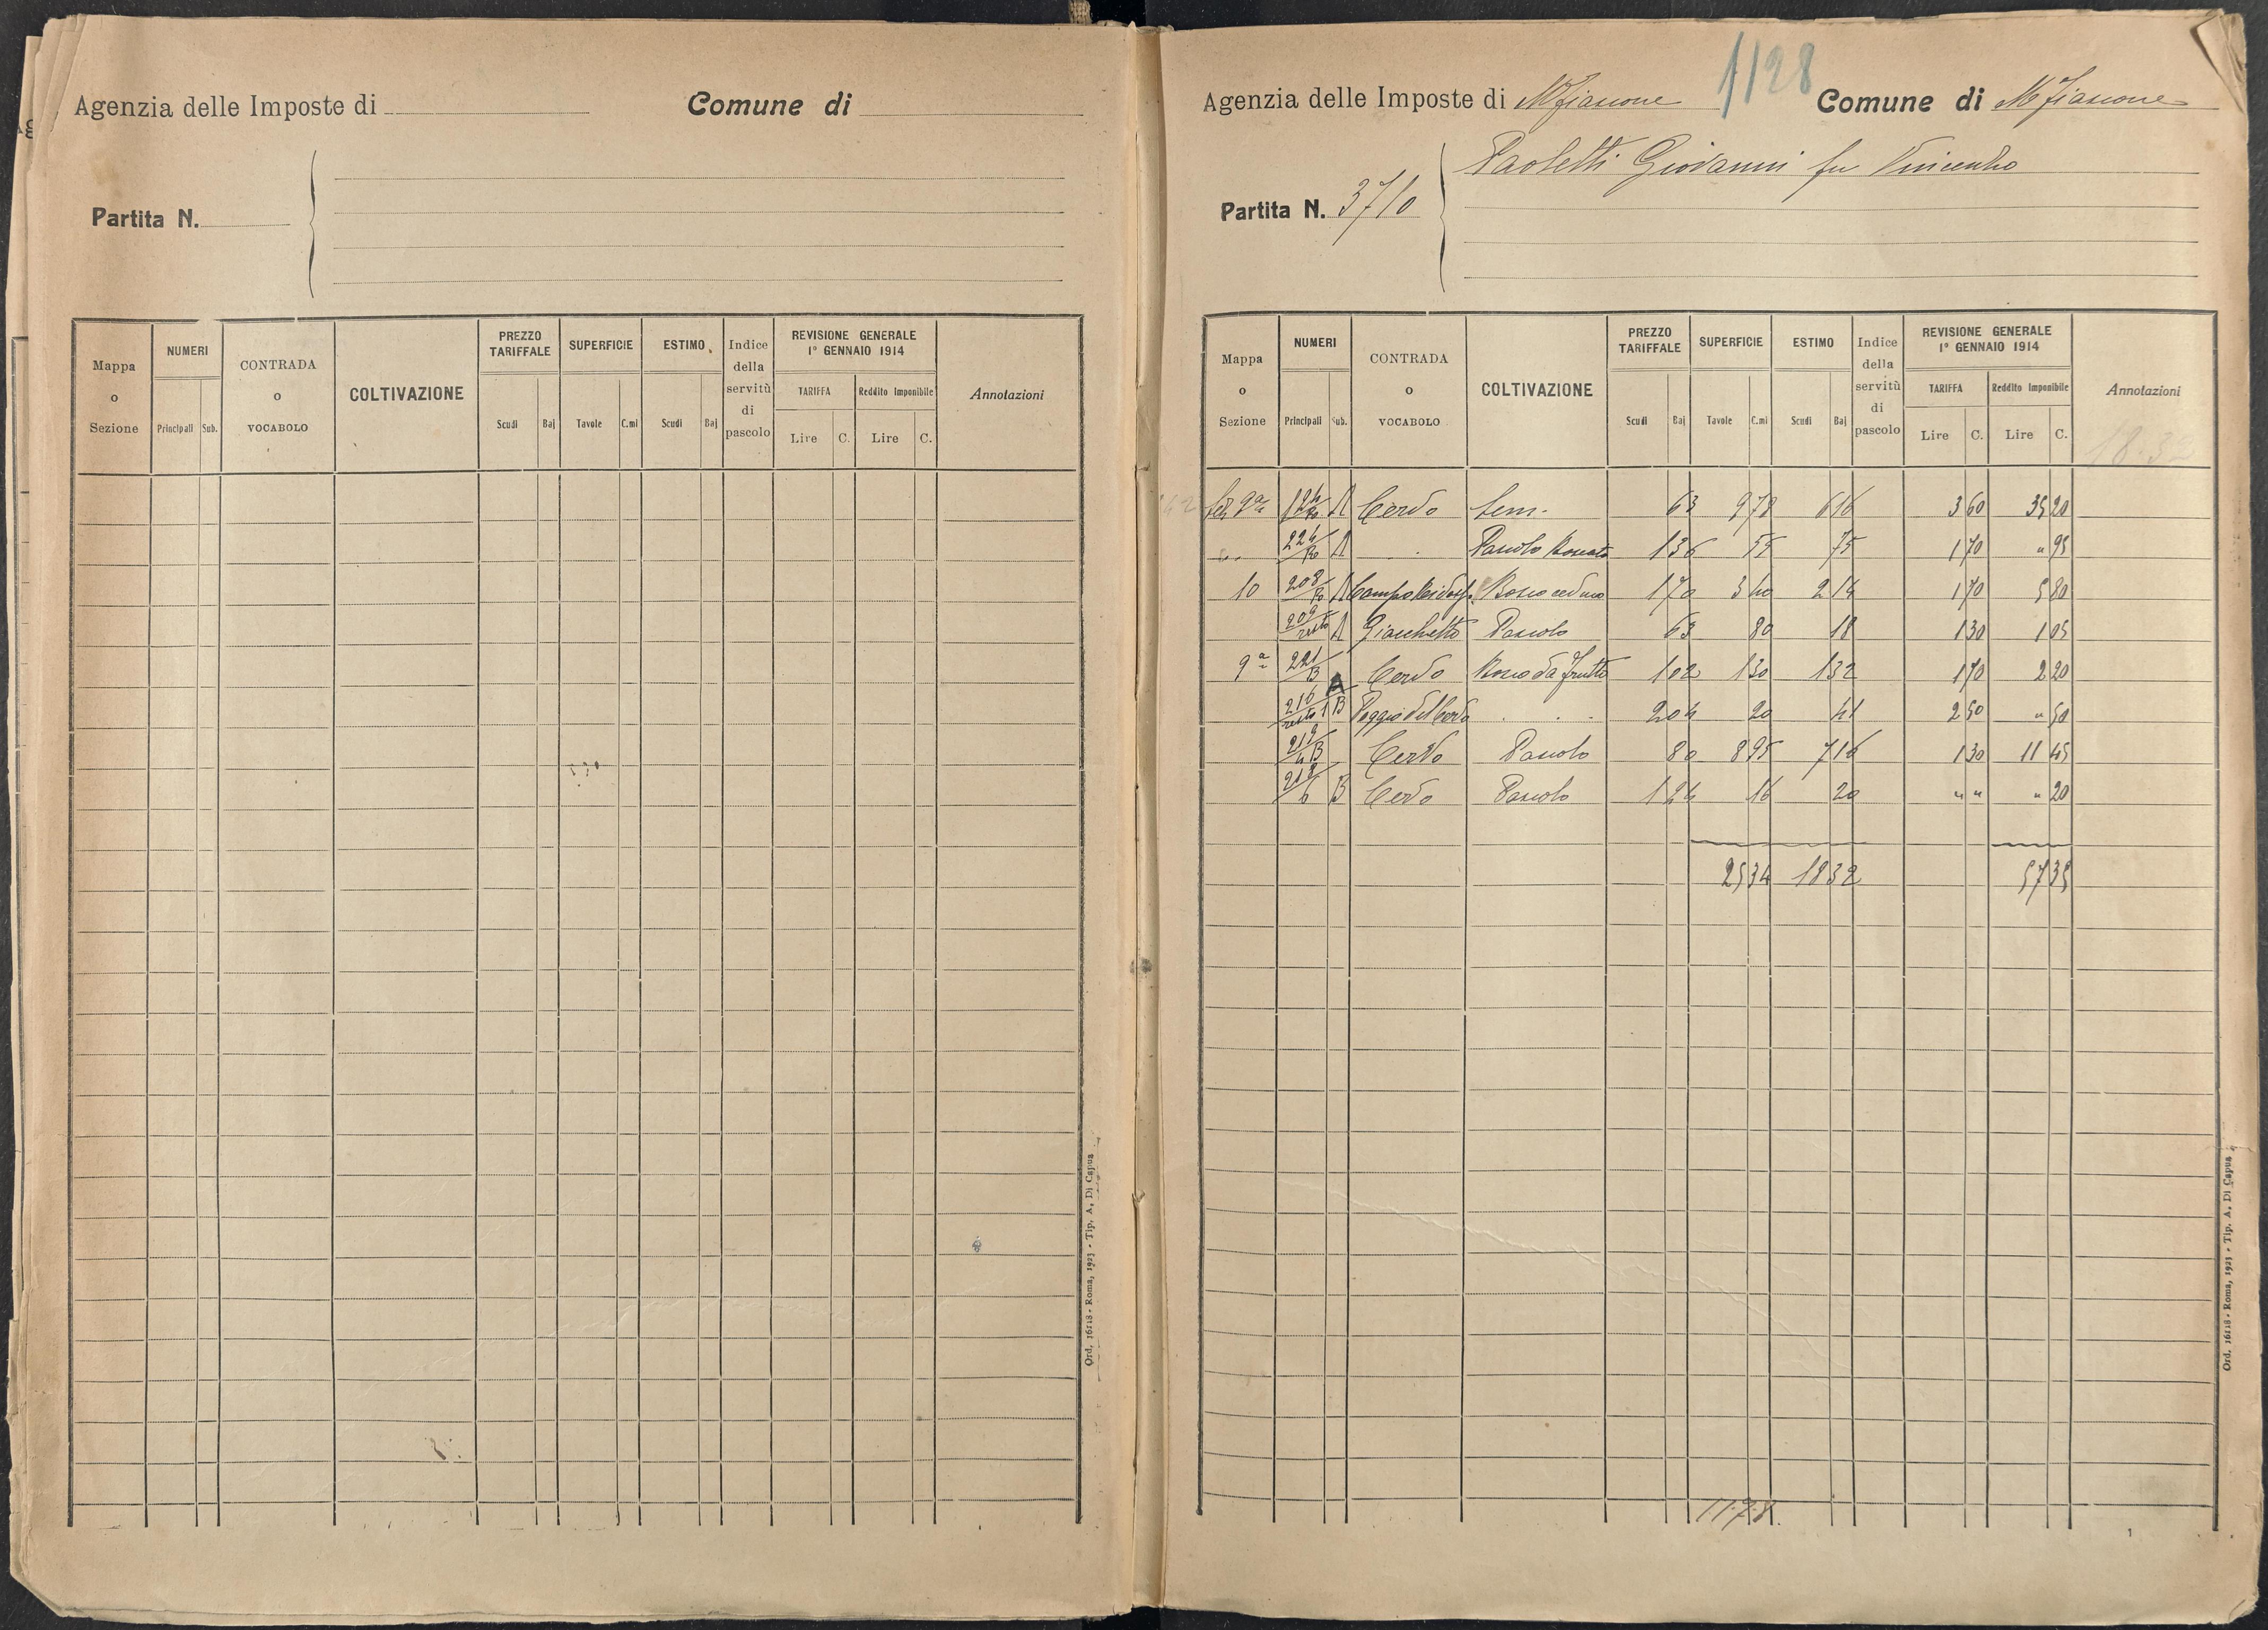 Agenzia delle Imposte di
Comune di
Partita N.
Mappa o Sezione
NUMERI
Principali Sub.
CONTRADA o VOCABOLO
COLTIVAZIONE
PREZZO TARIFFALE
Scudi Baj
SUPERFICIE
Tavole C.mi
ESTIMO
Scudi Baj
Indice della servitù di pascolo
REVISIONE GENERALE 1° GENNAIO 1914
TARIFFA
Lire C.
Reddito Imponibile
Lire C.
Annotazioni
Ord. 16118 - Roma, 1923 - Tip. A. Di Capua
1128
Agenzia delle Imposte di M Fiascone
Comune di M Fiascone
Partita N. 3710
Paoletti Giovanni fu Vincenzo
Mappa o Sezione
NUMERI
Principali Sub.
CONTRADA o VOCABOLO
COLTIVAZIONE
PREZZO TARIFFALE
Scudi Baj
SUPERFICIE
Tavole C.mi
ESTIMO
Scudi Baj
Indice della servitù di pascolo
REVISIONE GENERALE 1° GENNAIO 1914
TARIFFA
Lire C.
Reddito Imponibile
Lire C.
Annotazioni
9a Cerdo Sem. 63 978 616 3 60 35 20
Pascolo Boscato 136 55 75 1 70 " 95
10 208 Bosco ceduo 170 340 214 1 70 5 80
209 resto Giacchetto Pascolo 63 80 18 1 30 1 05
9a 221 B Cerdo Bosco da frutto 102 130 132 1 70 2 20
A
216 resto 1 B Poggio del Cerdo . . . 204 20 41 2 50 " 50
B Cerdo Pascolo 80 895 716 1 30 11 45
218 6 B Cerdo Pascolo 124 16 20 " " " 20
2534 1832 57 35
Ord. 16118 - Roma, 1923 - Tip. A. Di Capua